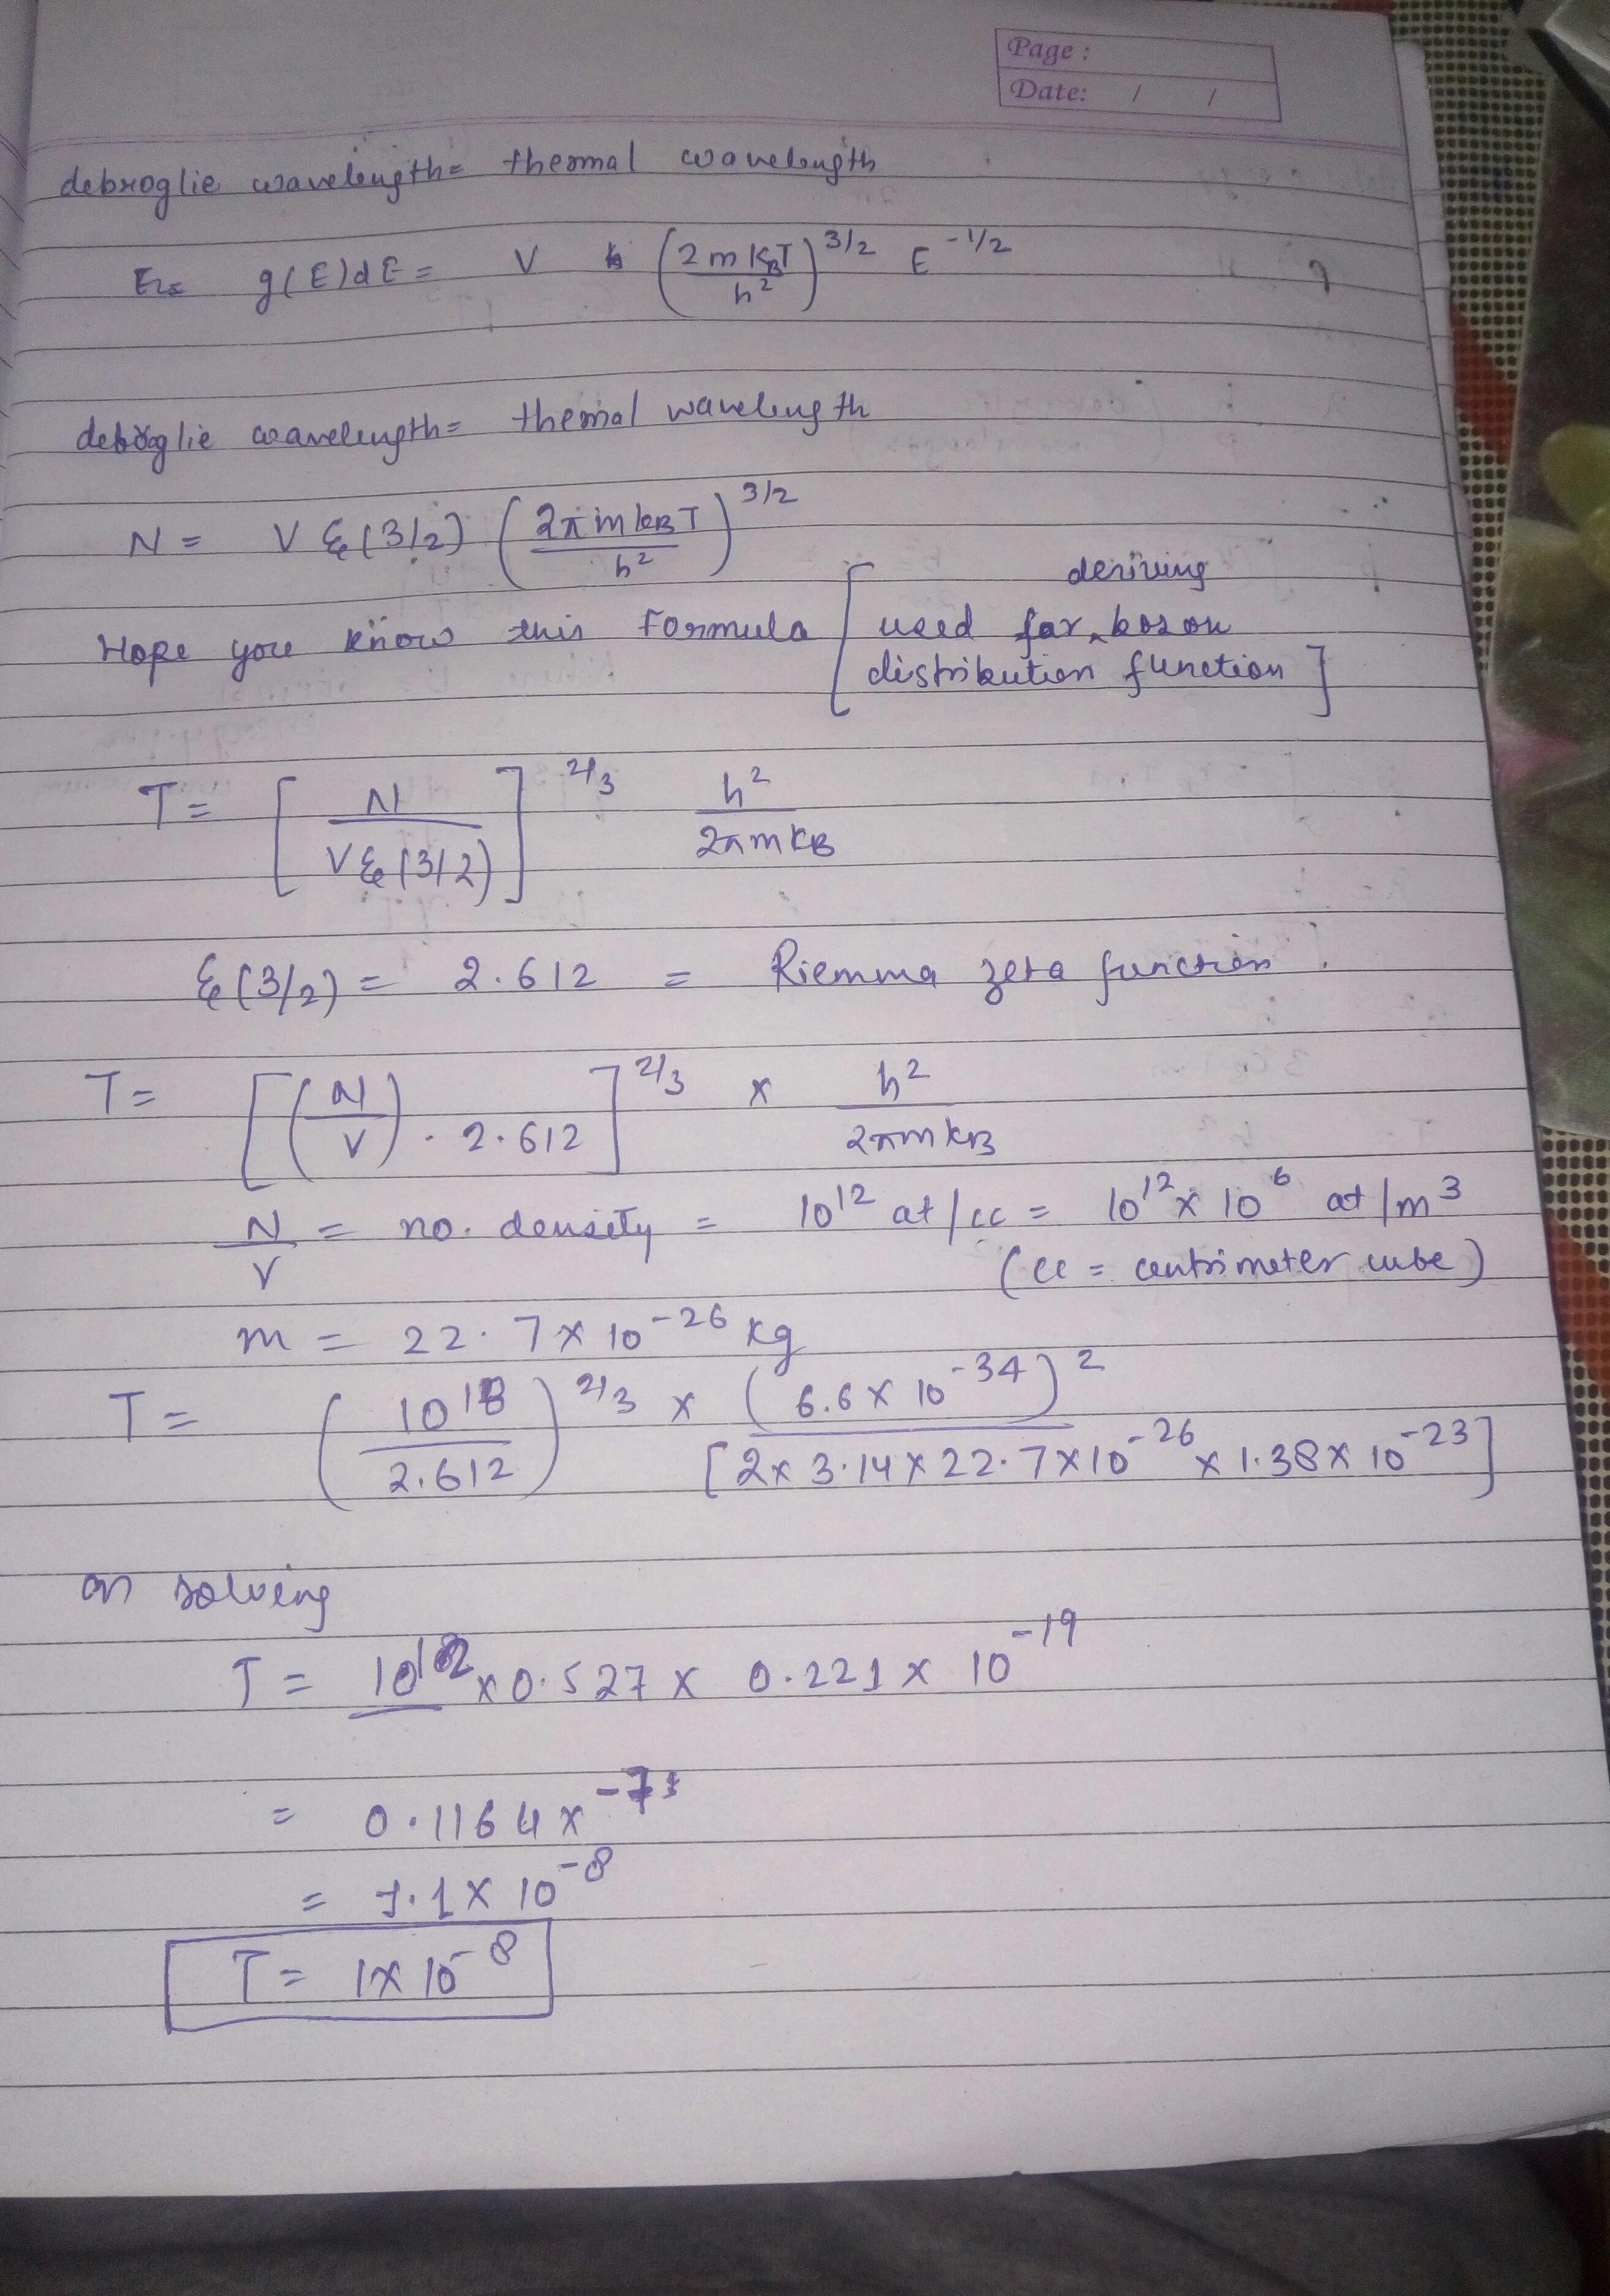 Page :
Date: / /
debroglie wavelength = thermal wavelength
g(E)dE = V (2mKBT/h²)^3/2 E^-1/2
debroglie wavelength = thermal wavelength
N = V ξ(3/2) (2πmkBT/h²)^3/2
Hope you know this formula [used for deriving boson
distribution function]
T = [N/Vξ(3/2)]^2/3 h²/2πmKB
ξ(3/2) = 2.612 = Riemma zeta function.
T = [(N/V) . 2.612]^2/3 × h²/2πmKB
N/V = no. density = 10^12 at/cc = 10^12 × 10^6 at/m³
(cc = centimeter cube)
m = 22.7 × 10^-26 kg
T = (10^18/2.612)^2/3 × (6.6 × 10^-34)²/[2 × 3.14 × 22.7 × 10^-26 × 1.38 × 10^-23]
on solving
T = 10^12 × 0.527 × 0.221 × 10^-19
= 0.1164 × ^-7
= 1.1 × 10^-8
T = 1 × 10^-8